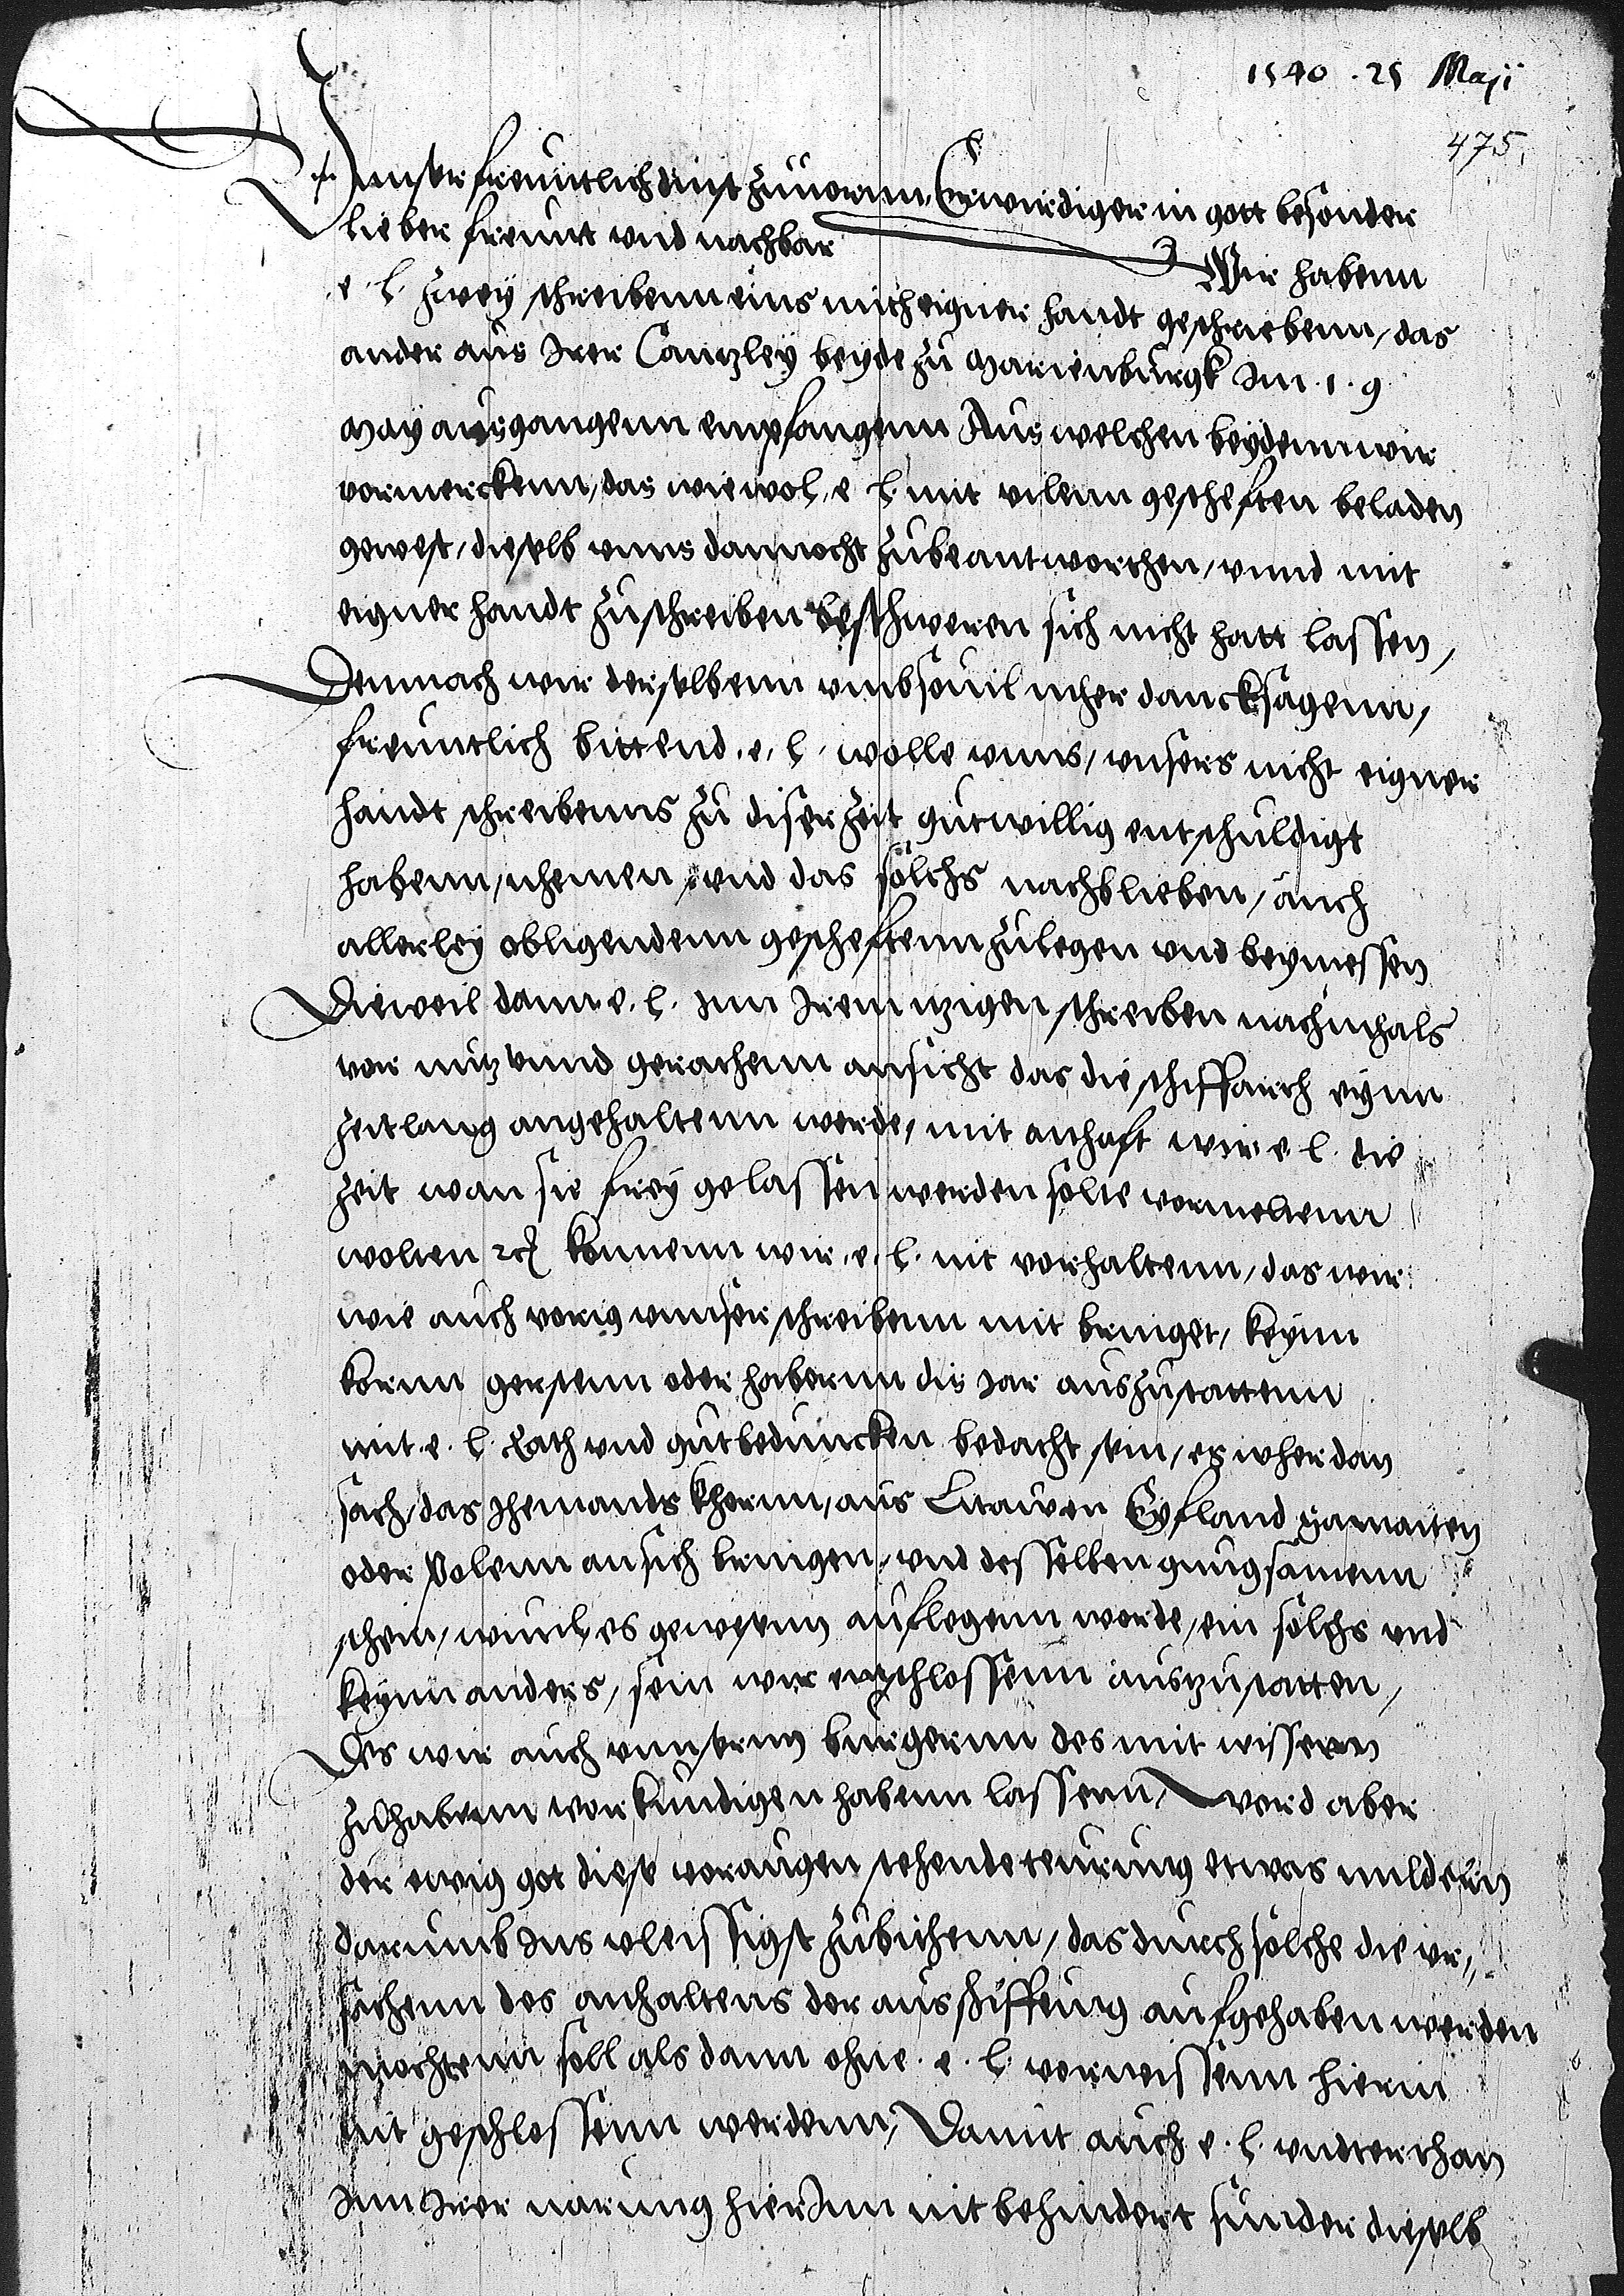 1540 . 25 Maji
475.
Unser freuntlich dinst zuuornn, Erwirdiger in gott besonder
lieber freunt vnd nachbar Wir habenn
e. l. zwey schreibenn eins mit eigner handt geschriebenn, das
ander aus Irer Cantzley beyde zu Marienburgk Im . 19
May ausgangenn empfangenn Aus welchen beydenn wir
vormerckenn, das wiewol, e l. mit vilenn gescheften beladen
gewest, dieselb vnns dannocht zubeantworthen, vnnd mit
eigner handt zuschreiben beschweren sich nicht hatt lassen,
Demnach wir derselbenn vmbsouil meher dancksagenn,
freuntlich bittend. e. l. wolle vnns, vnsers nicht eigner
handt schreibenns zu diser zeit gutwillig entschuldigt
habenn, nhemen, vnd das solchs nachblieben, auch
allerley obligendenn gescheftenn zulegen vnd beymessen
Dieweil dann e. l. Inn Irem itzigen schreiben nachmhals
vor nutz vnnd gerathenn ansicht das die schiffarth eynn
zeitlang angehaltenn werde, mit anhaft wir e. l. die
zeit wan sie frey gelassen werden solte vormeldenn
wolten etc konnenn wir. e. l. nit vorhaltenn, das wir
wie auch vorig vnnser schreibenn mit bringet, keynn
kornn gerstenn oder habernn dis Jar auszustattenn
mit. e. l. Rath vnd gutbeduncken bedacht sein, es wher dan
sach, das Jhemands khornn, aus Littawen Eyfland Samaiten
oder Polenn an sich bringen, vnd desselben gnugsamenn
schein, wurch es gewesenn auflegenn worde, ein solchs vnd
keynn anders, sein wir entschlossenn auszustatten,
Des wir auch vnnsernn burgernn des mit wissenn
zuhabenn vorkundigen habenn lassenn, Word aber
der ewig got diese voraugen stehende teurung etwas mildern
darumb Ins vleissigst zubithenn, das durch solche die vr,,
sachenn des anhaltens der ausschiffung aufgehaben werden
mochtenn soll als dann ohne. e. l. vorwissenn hierin
nit geschlossenn werdenn, Damit auch e. l. vnderthan
Inn Irer narung hierInn nit behindert sunder dieselb